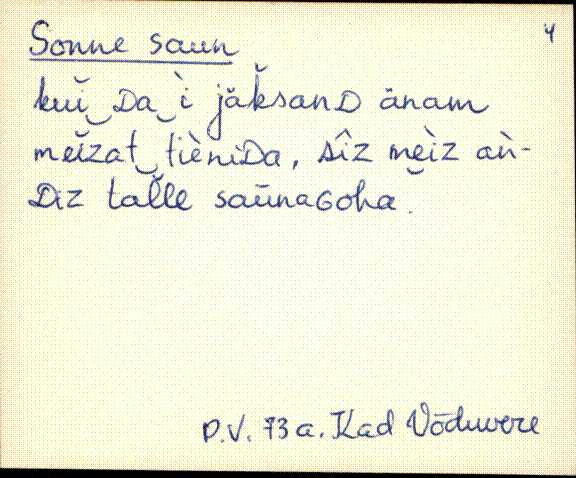 4
Sonne saun
kuǐ‿Da‿ì jäǩsanD änam
meǐzat‿tièniDa, sîz mèiz aǹ-
Diz taľle saūnaGoha.
P.V. 73 a. Kad Võduvere